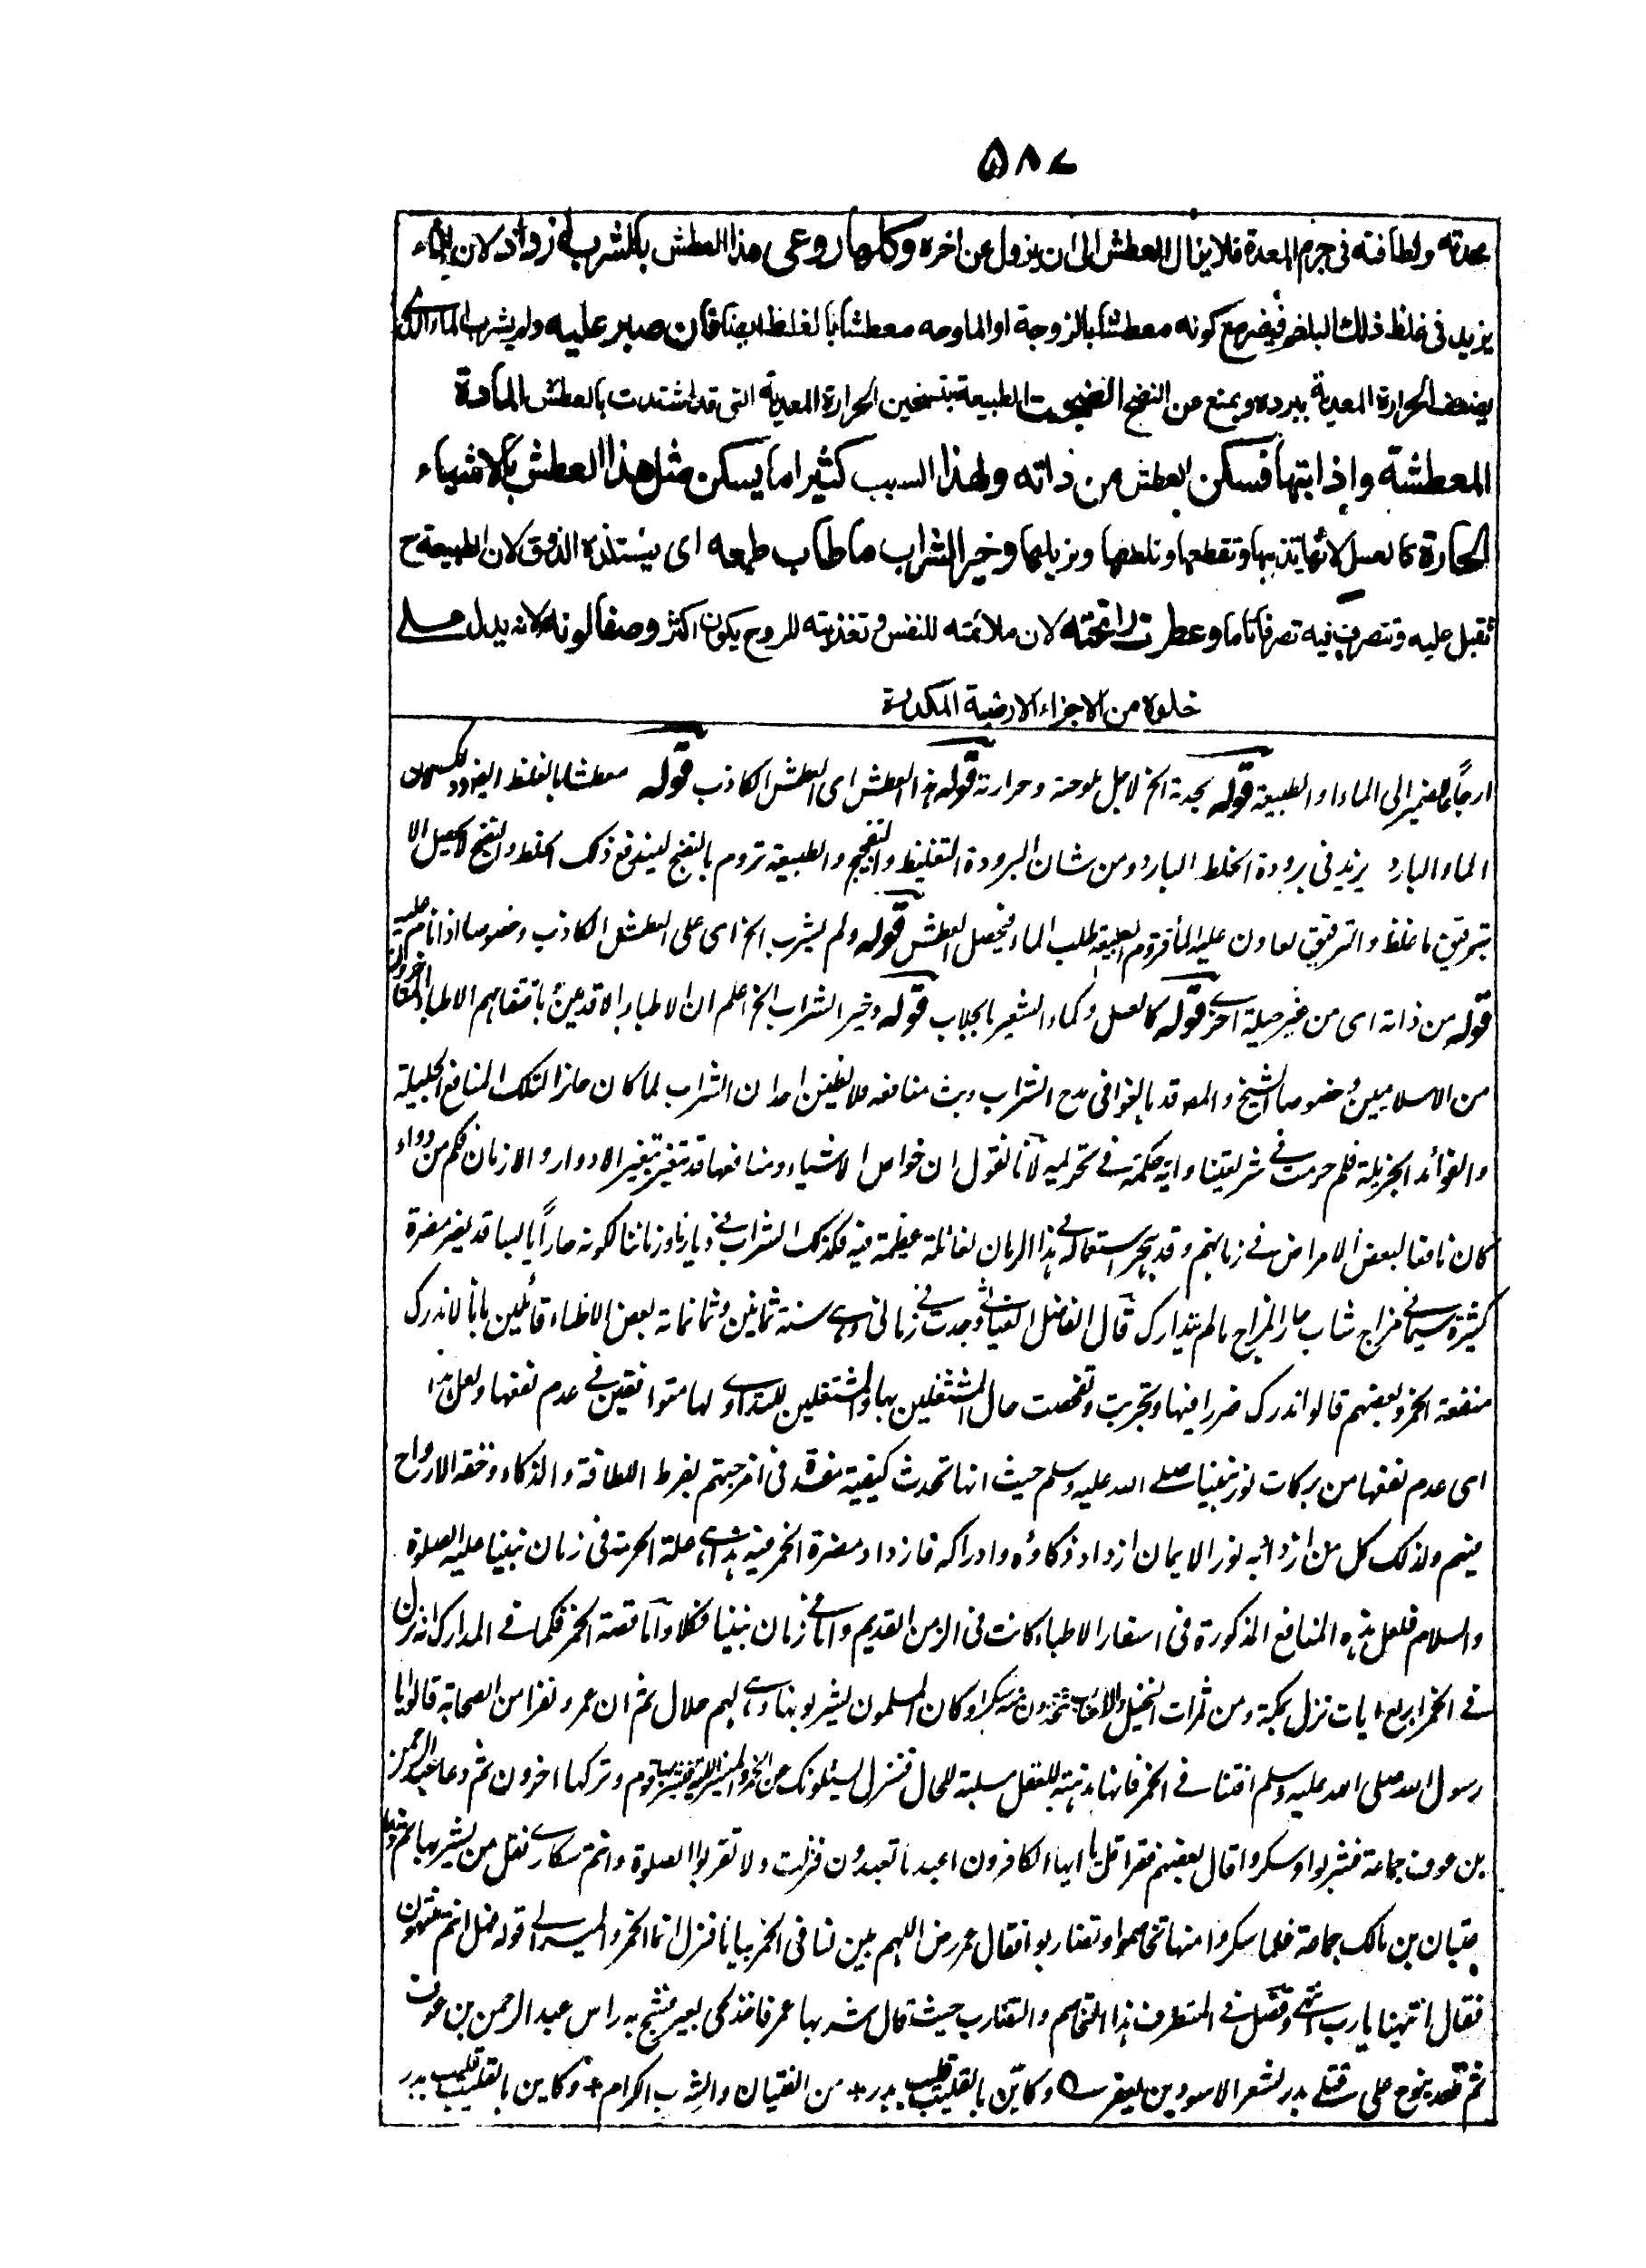 ۵۸۷
بحدته ولطافته فی جرم المعدة فلا یزال العطش الی ان یزول عن اخره وکلما روعی هذا العطش بالشرب ازداد لان الماء
یزید فی غلظ ذلك البلغم فیضر مع کونه معطشا بالزوجة او الملوحه معطشا بالغلظ ایضا فان صبر علیه ولم یشرب الماء الذی
یضعف الحرارة المعدیة ببرده ویمنع عن النضج انضجت الطبیعة بتسخین الحرارة المعدیة التی قد اشتدت بالعطش المادة
المعطشة واذابتها فسکن العطش من ذاته ولهذا السبب کثیرا ما یسکن مثل هذا العطش بالاشیاء
الحارة کالعسل لانها تذیبها وتقطعها وتلطفها وتزیلها وخیر الشراب ما طاب طعمه ای یستلذه الذوق لان الطبیعة ح
تقبل علیه وتتصرف فیه تصرفا تاما وعطرت رائحته لان ملائمته للنفس وتغذیته للروح یکون اکثر وصفا لونه لانه یدل علی
خلوه من الاجزاء الارضیة المکدرة
ارجاع الضمیر الی الماء او الطبیعة قوله بحدته الخ لاجل ملوحته وحرارته قوله هذا العطش ای العطش الکاذب قوله معطشا بالغلظ ایضا
الماء البارد یزید فی برودة الخلط البارد ومن شان البرودة التغلیظ والتفجیج والطبیعة تروم بالنضج لیندفع ذلک الخلط والنضج لا یحصل الا
بترقیق ما غلظ والترقیق یعاون علیه الماء فتروم الطبیعة طلب الماء فیحصل العطش قوله ولم یشرب الخ ای علی العطش الکاذب وخصوصا اذا نام علیه
قوله من ذاته ای من غیر حیلة اخری قوله کالعسل وکماء الشعیر بالجلاب قوله وخیر الشراب الخ اعلم ان الاطباء الاقدمین باتفاقهم الاطباء
من الاسلامیین خصوصا الشیخ والمص قد بالغوا فی مدح الشراب وبث منافعه فلا یظنن احد ان الشراب لما کان حائزا لتلک المنافع الجلیلة
والفوائد الجزیلة فلم حرمت فی شریعتنا وایة حکمة فی تحریمه لانا نقول ان خواص الاشیاء ومنافعها قد تتغیر بتغیر الادوار والازمان فکم من دواء
کان نافعا لبعض الامراض فی زمانهم وقد یهجر استعماله فی هذا الزمان لغائلة عظیمة فیه فکذلک الشراب فی دیارنا وزماننا لکونه حارا یابسا قد یضر مضرة
کثیرة سیما فی مزاج شاب حار المزاج ما لم یتدارک قال الفاضل وجدت فی زمانی وهی سنة ثمانین وثمانمائة بعض الاطباء قائلین بانا لا ندرک
منفعة الخمر وبعضهم قالوا ندرک ضررا فیها وتجربت وتفحصت حال المشتغلین بها والمشتغلین للتداوی لها متوافقین فی عدم نفعها ولعل هذا
ای عدم نفعها من برکات نور نبینا صلی الله علیه وسلم حیث انها تحدث کیفیة مفسدة فی امزجتهم لفرط اللطافة والذکاء وخفة الارواح
فیهم ولذلک کل من ازداد به نور الایمان ازداد ذکاؤه وادراکه فازداد مضرة الخمر فیه هذا هی علة الحرمة فی زمان نبینا علیه الصلوة
والسلام فلعل هذه المنافع المذکورة فی اسفار الاطباء کانت فی الزمن القدیم واما فی زمان نبینا فکلا واما قصة الخمر فکما فی المدارک انه نزل
فی الخمر اربع ایات نزل بمکة ومن ثمرات النخیل والاعناب تتخذون منه سکرا وکان المسلمون یشربونها وهی لهم حلال ثم ان عمر ونفرا من الصحابة قالوا یا
رسول الله صلی الله علیه وسلم افتنا فی الخمر فانها مذهبة للعقل مسلبة للمال فنزل یسئلونک عن الخمر والمیسر فشربها قوم وترکها اخرون ثم دعا عبد الرحمن
بن عوف جماعة فشربوا وسکروا فقال بعضهم فقرا قل یا ایها الکافرون اعبد ما تعبدون فنزلت ولا تقربوا الصلوة وانتم سکاری فقل من یشربها ثم دعا
عتبان بن مالک جماعة فلما سکروا منها تخاصموا وتضاربوا فقال عمر رض اللهم بین لنا فی الخمر بیانا فنزل انما الخمر والمیسر الی قوله فهل انتم منتهون
فقال انتهینا یا رب انتهی وفصل فی المستطرف هذا التخاصم والتضارب حیث قال شربها عمر فاخذ لحی بعیر فشج به راس عبد الرحمن بن عوف
ثم قعد ینوح علی قتلی بدر بشعر الاسود بن یعفر وکاین بالقلیب قلیب بدر + من الفتیان والشرب الکرام + وکاین بالقلیب قلیب بدر